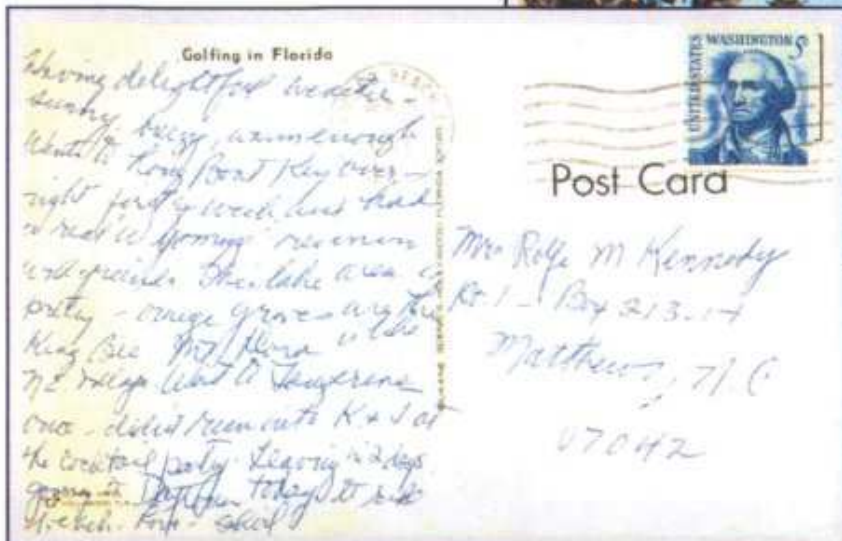 Golfing in Florida
Having delightful weather -
sunny, breezy, warm enough
Went to Long Boat Key over-
night first week and had
a real Wyoming reunion
and friends. This lake area is
pretty - orange groves are the
King Bee Mt Dora is like
NE village Went to Tangerine
once - didn't run into K & J at
the cocktail party. Leaving in 2 days
going to Daytona today to see
Love -
BEACH
UNITED STATES WASHINGTON 5¢
Post Card
Mrs Rolfe M Kennedy
Rt 1 - Box 213-
Matthews, N.C
07042